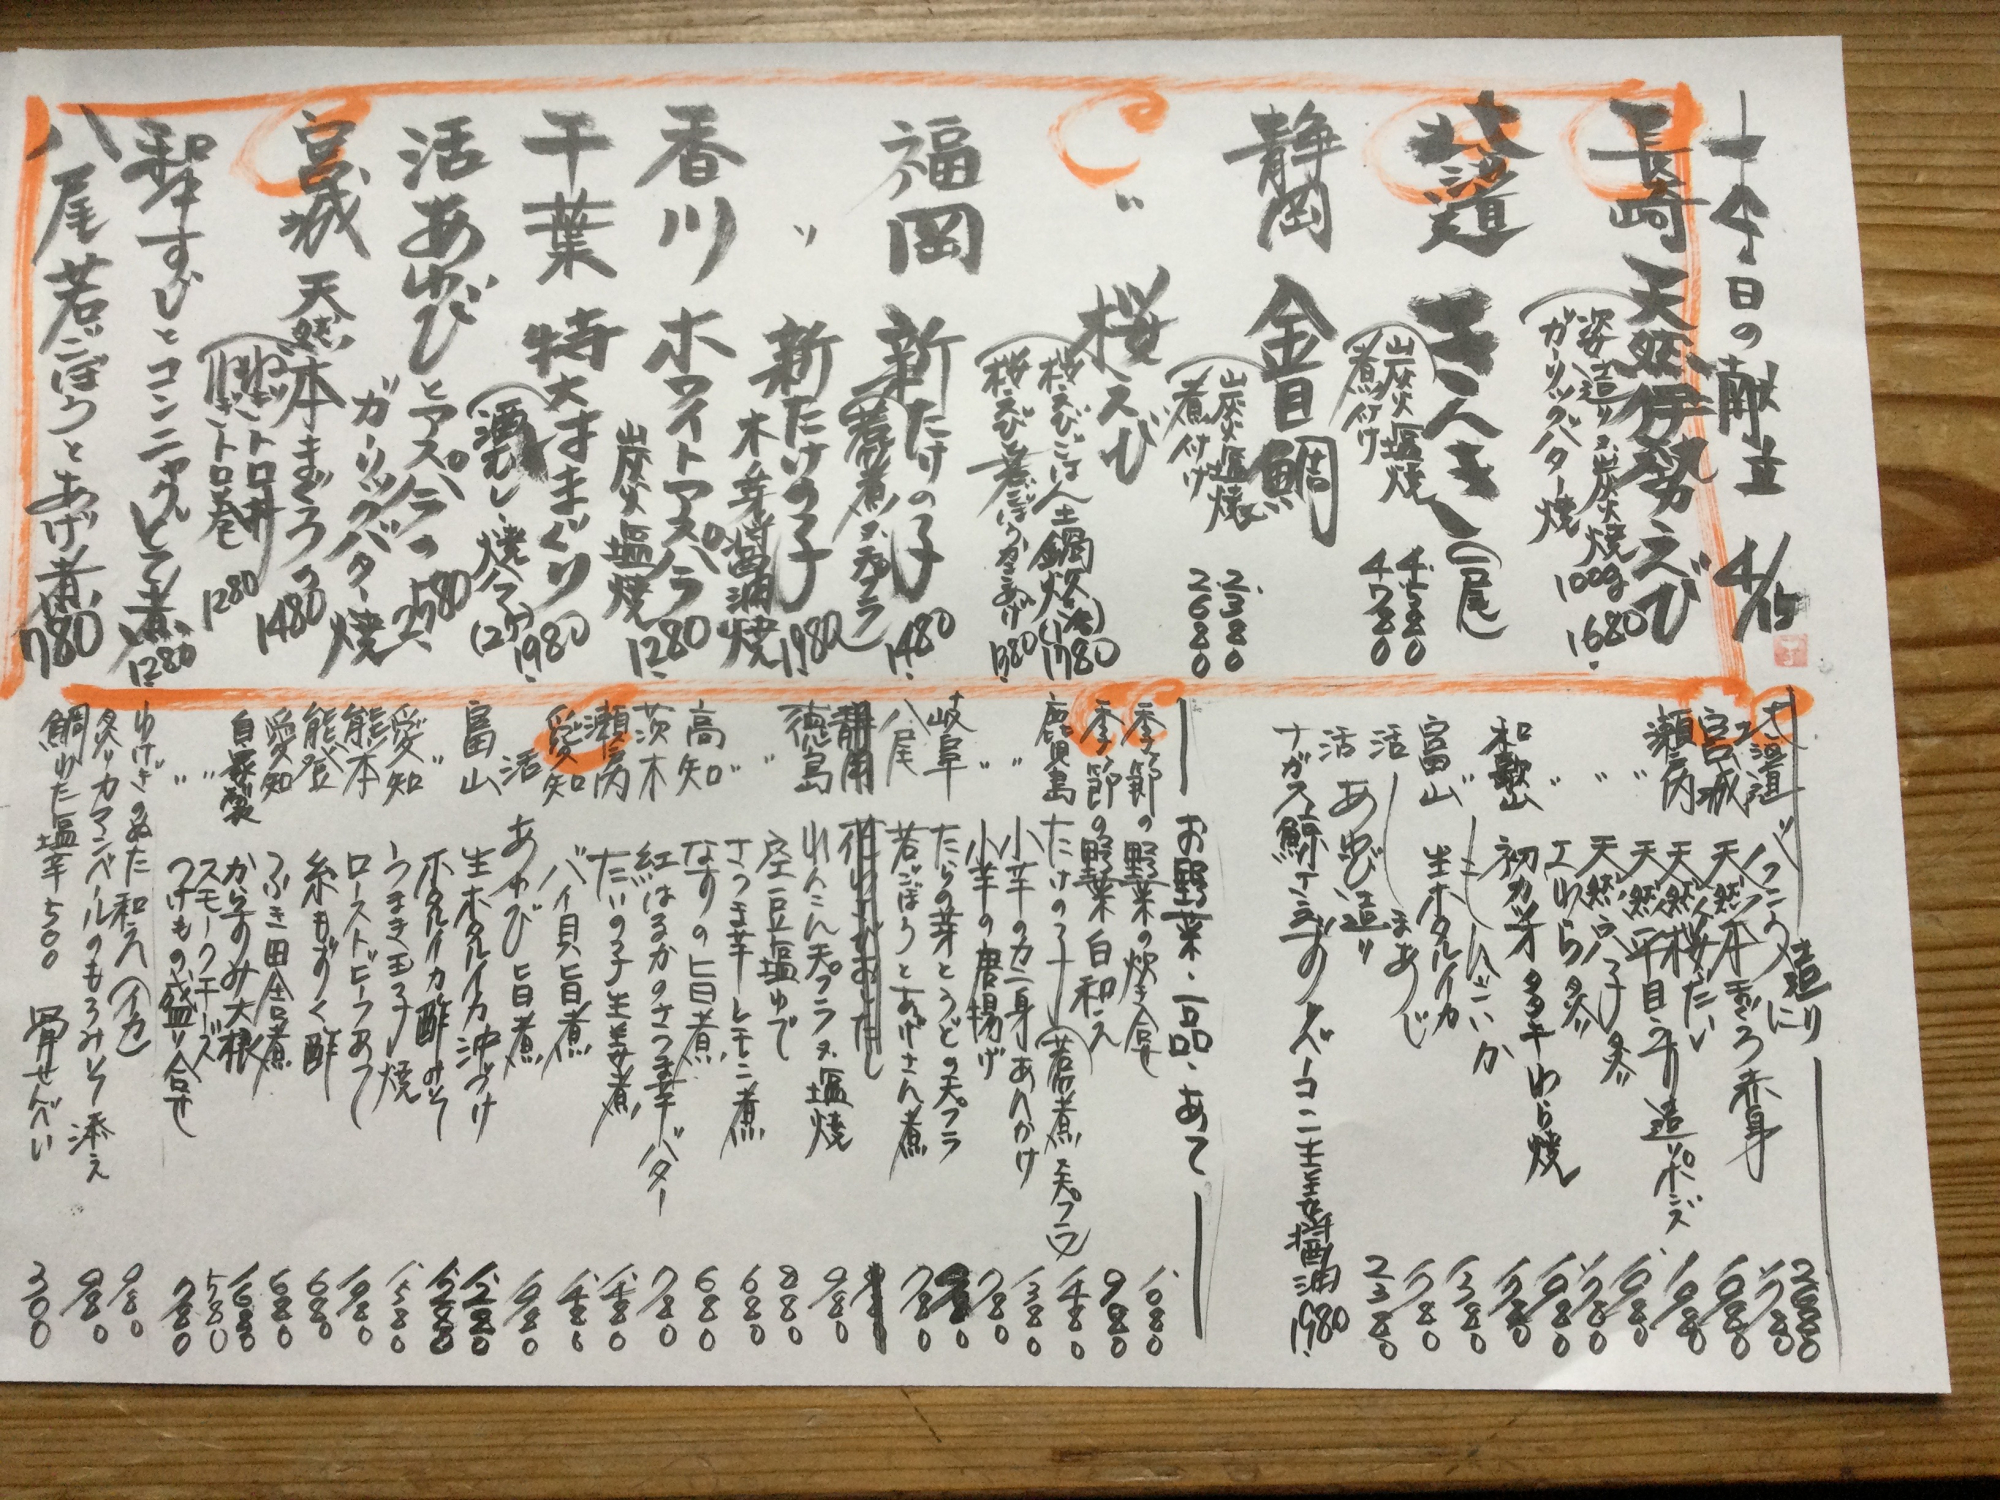 今日の献立 4/15
長崎 天然伊勢えび
姿造り又炭火焼 100g 1680
ガーリックバター焼
北海道 きんき(一尾)
炭火塩焼 4580
煮付け 4780
静岡 金目鯛
炭火塩焼 2380
煮付け 2680
〃 桜えび
桜えびごはん土鍋炊 1780
桜えびと若ごぼうかきあげ 1380
福岡 新たけの子
(若煮又天プラ 1480
〃 新たけの子
木の芽醤油焼 1980
香川 ホワイトアスパラ
炭火塩焼 1280
千葉 特大はまぐり
(酒むし、焼き (2ケ) 1980
活あわびとアスパラの 2580
ガーリックバター焼
宮城 天然本まぐろの 1480
ねぎトロ丼
ねぎトロ巻 1280
熊本すじとコンニャクどて煮 1280
八尾若ごぼうとあげ煮 780
造り
北海道 バフンウニ 2680
宮城 天然本まぐろ赤身
瀬戸内 天然桜だい
〃 天然平目うす造りポンズ
〃 天然穴子炙り
〃 えわら炙り
和歌山 初カツオタタキわら焼
〃 しんこいか
富山 生ホタルイカ
活〆まあじ
活あわび造り 2380
ナガス鯨ミズのベーコン生姜醤油 1980
お野菜・一品・あて
季節の野菜の炊き合せ 1080
季節の野菜白和え 980
鹿児島 たけの子(若煮、天プラ) 1480
〃 小芋のカニ身あんかけ 1380
〃 小芋の唐揚げ 780
岐阜 たらの芽とうどの天プラ
八尾 若ごぼうとあげさん煮 780
徳島 れんこん天プラ又塩焼 980
〃 空豆塩ゆで 880
〃 さつま芋レモン煮 680
高知 なすの旨煮 680
茨木 紅はるかのさつま芋バター 780
瀬戸内 たいの子生姜煮 1480
愛知 バイ貝旨煮 1480
活あわび旨煮 1980
富山 生ホタルイカ沖づけ 1280
〃 ホタルイカ酢みそ 1280
愛知 うまき玉子焼 1580
熊本 ローストビーフあて 1980
能登 糸もずく酢 680
愛知 ふき田舎煮 680
自家製 からすみ大根 1680
〃 スモークチーズ 580
〃 つけもの盛り合せ 780
わけぎのぬた和え(イカ) 980
炙りカマンベールのもろみそ添え 980
鯛わた塩辛 500 骨せんべい 300